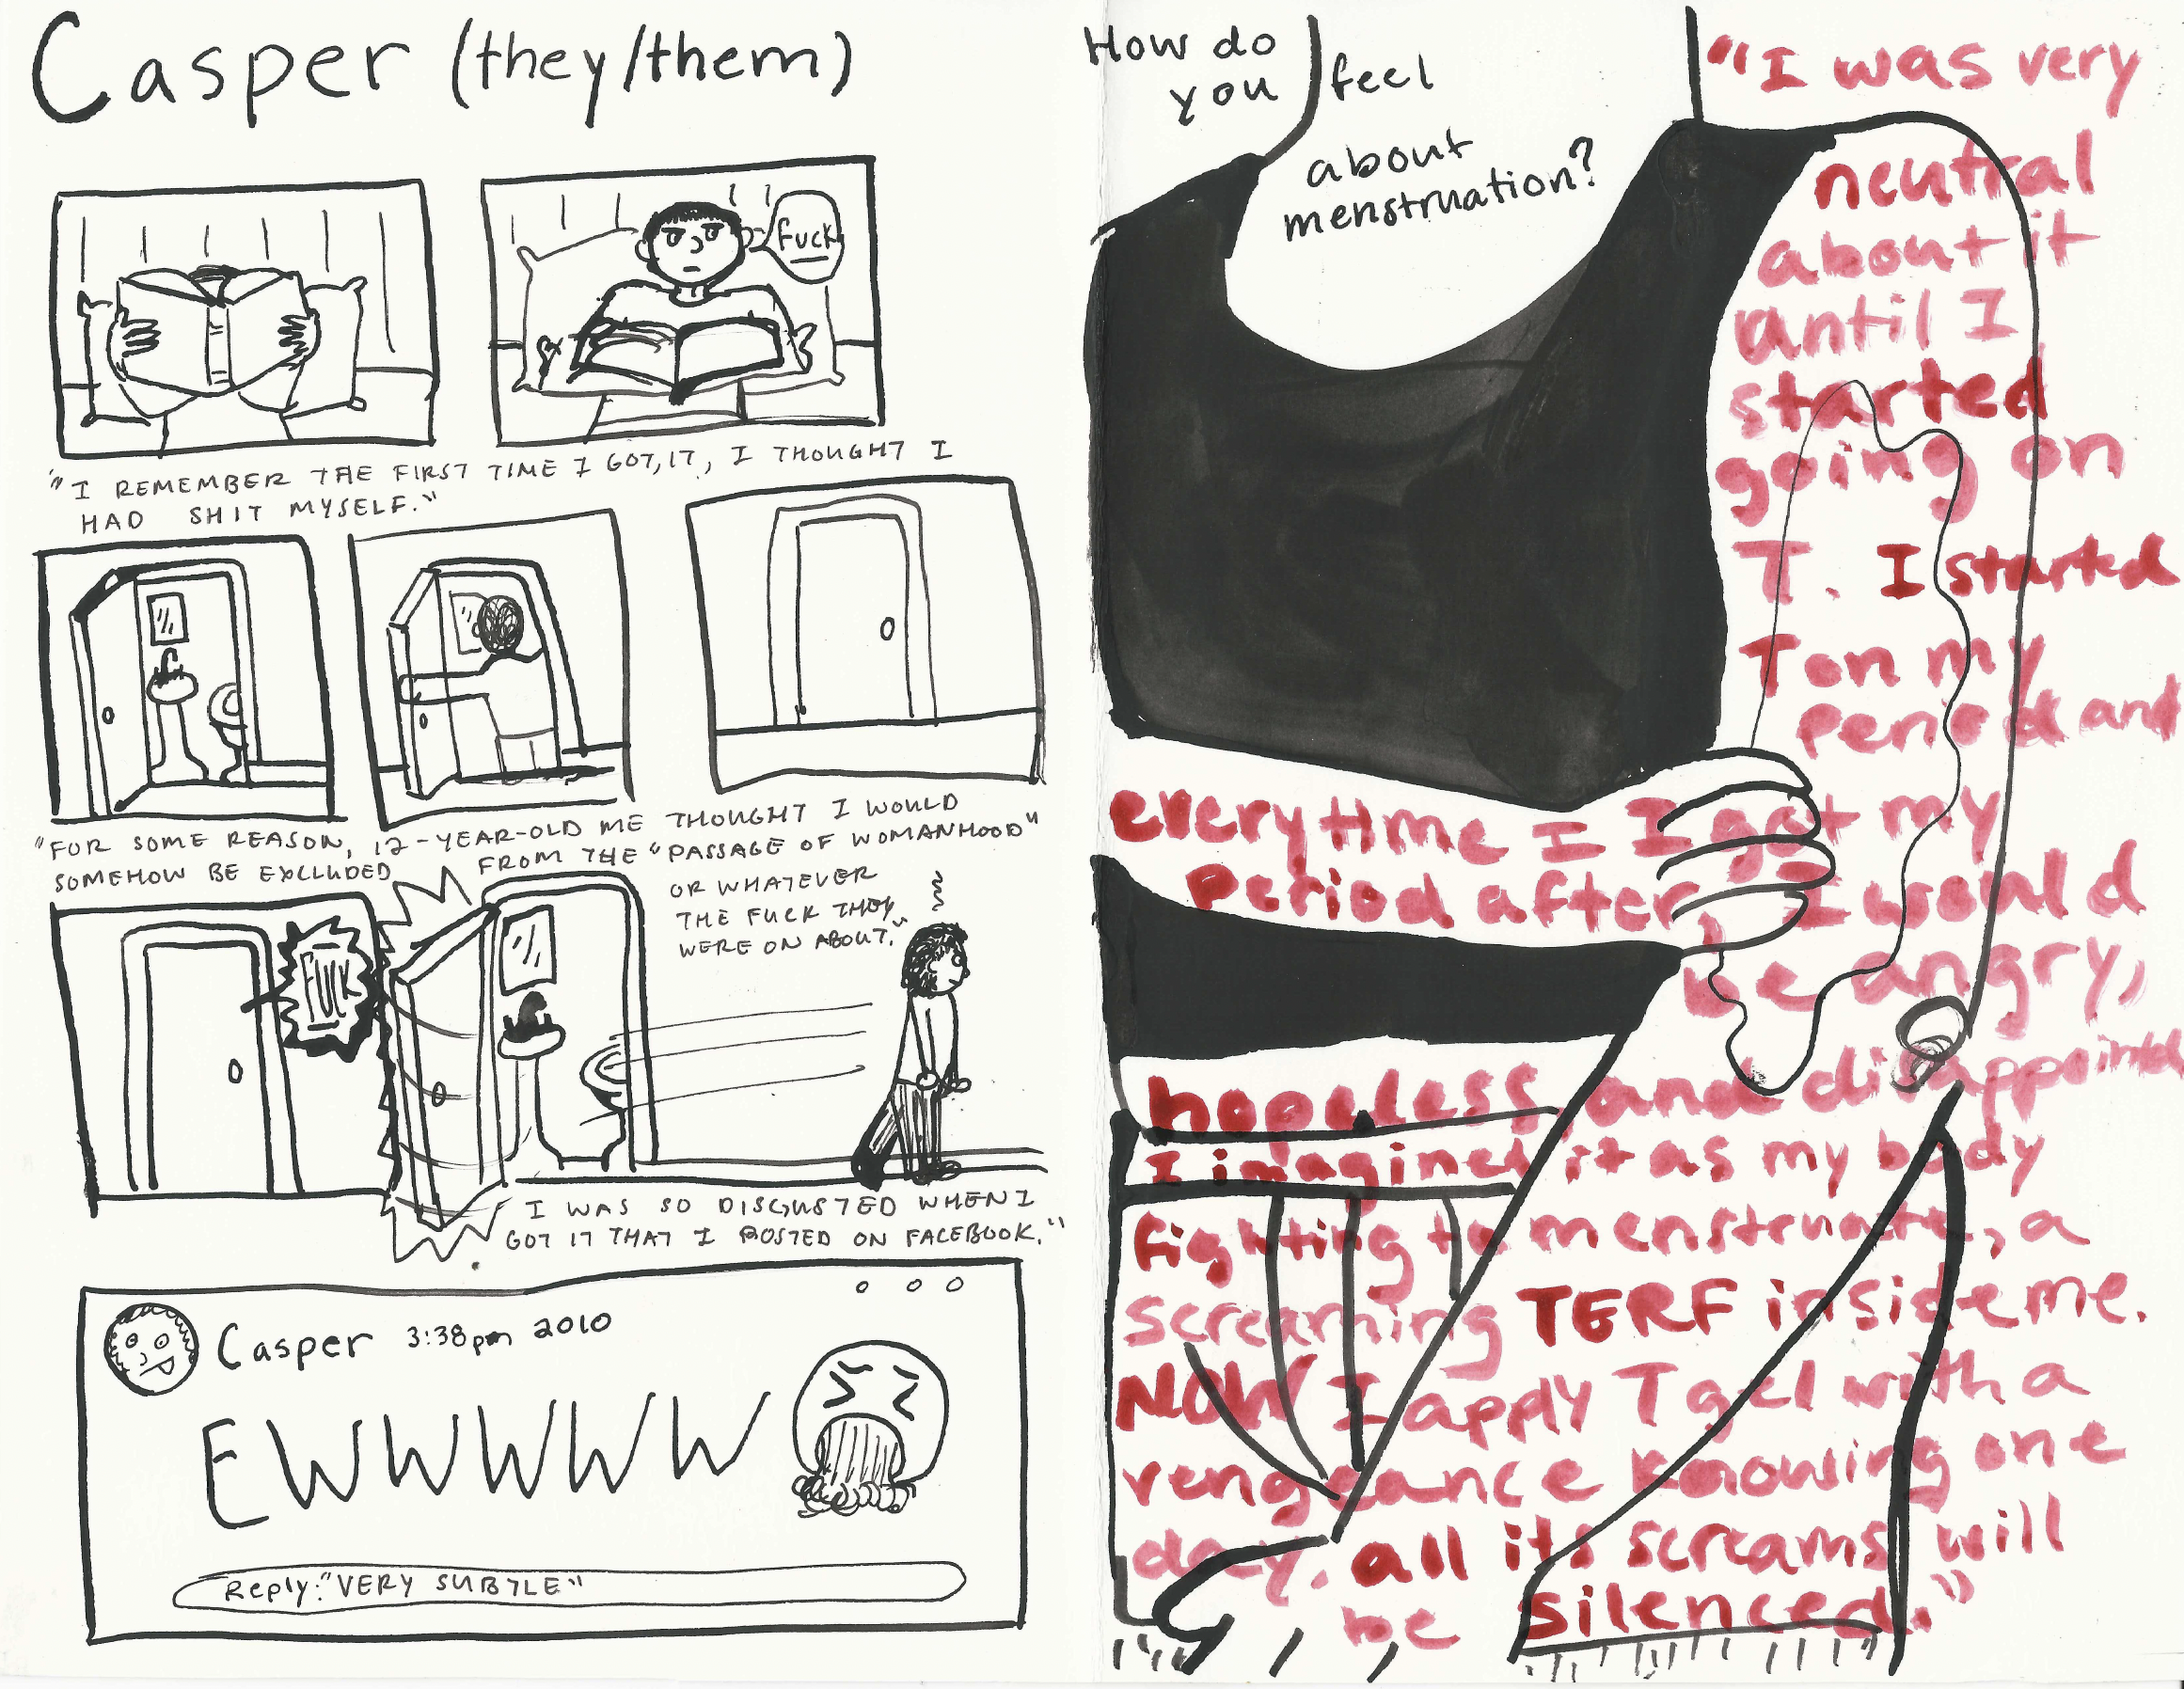 Casper (they/them)
fuck
"I REMEMBER THE FIRST TIME I GOT IT, I THOUGHT I
HAD SHIT MYSELF."
"FOR SOME REASON, 12-YEAR-OLD ME THOUGHT I WOULD
SOMEHOW BE EXCLUDED FROM THE "PASSAGE OF WOMANHOOD"
OR WHATEVER
THE FUCK THEY
WERE ON ABOUT."
FUCK
I WAS SO DISGUSTED WHEN I
GOT IT THAT I POSTED ON FACEBOOK."
Casper 3:38pm 2010
EWWWWW
Reply: "VERY SUBTLE"
How do
you feel
about
menstruation?
"I was very
neutral
about it
until I
started
going on
T. I started
T on my
period and
everytime I I got my
Period after, I would
be angry,
hopeless, and disappointed
I imagined it as my body
fighting to menstruate, a
screaming TERF inside me.
NOW I apply T gel with a
vengeance knowing one
day, all its screams will
be silenced."